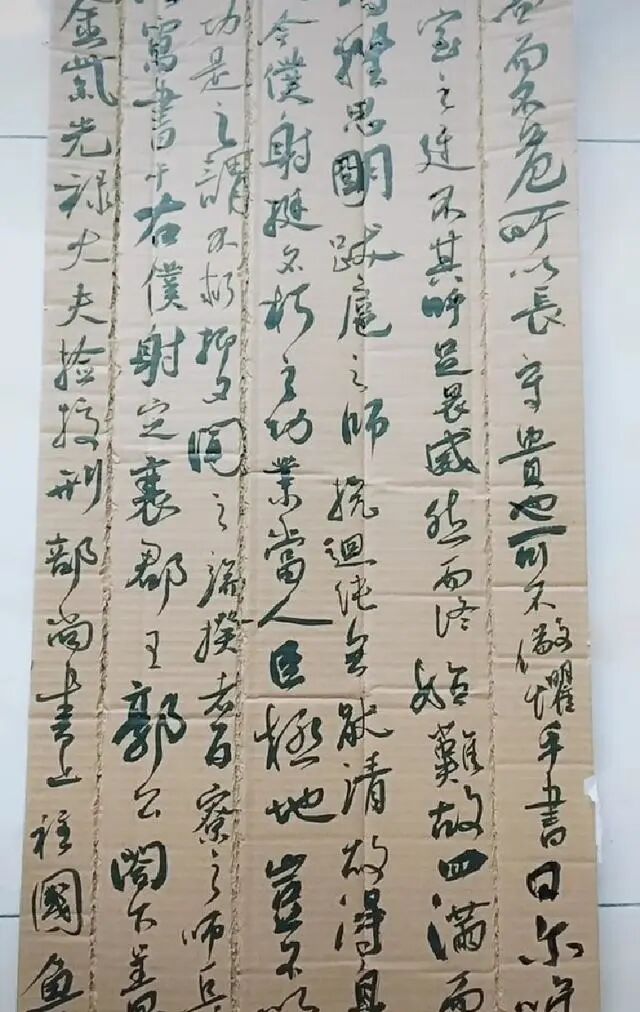 而不危所以長守貴也可不儆懼乎書曰尔唯
室之廷不其吁足畏威然而終始難故四滿而
思明跋扈之師抗迴紇無猒請故得身
令僕射挺不朽之功業當人臣極地豈不以
功是之謂不朽抑又聞之端揆者百寮之師長
寓書于右僕射定襄郡王郭公閣下蓋
金紫光祿大夫檢校刑部尚書上柱國魯